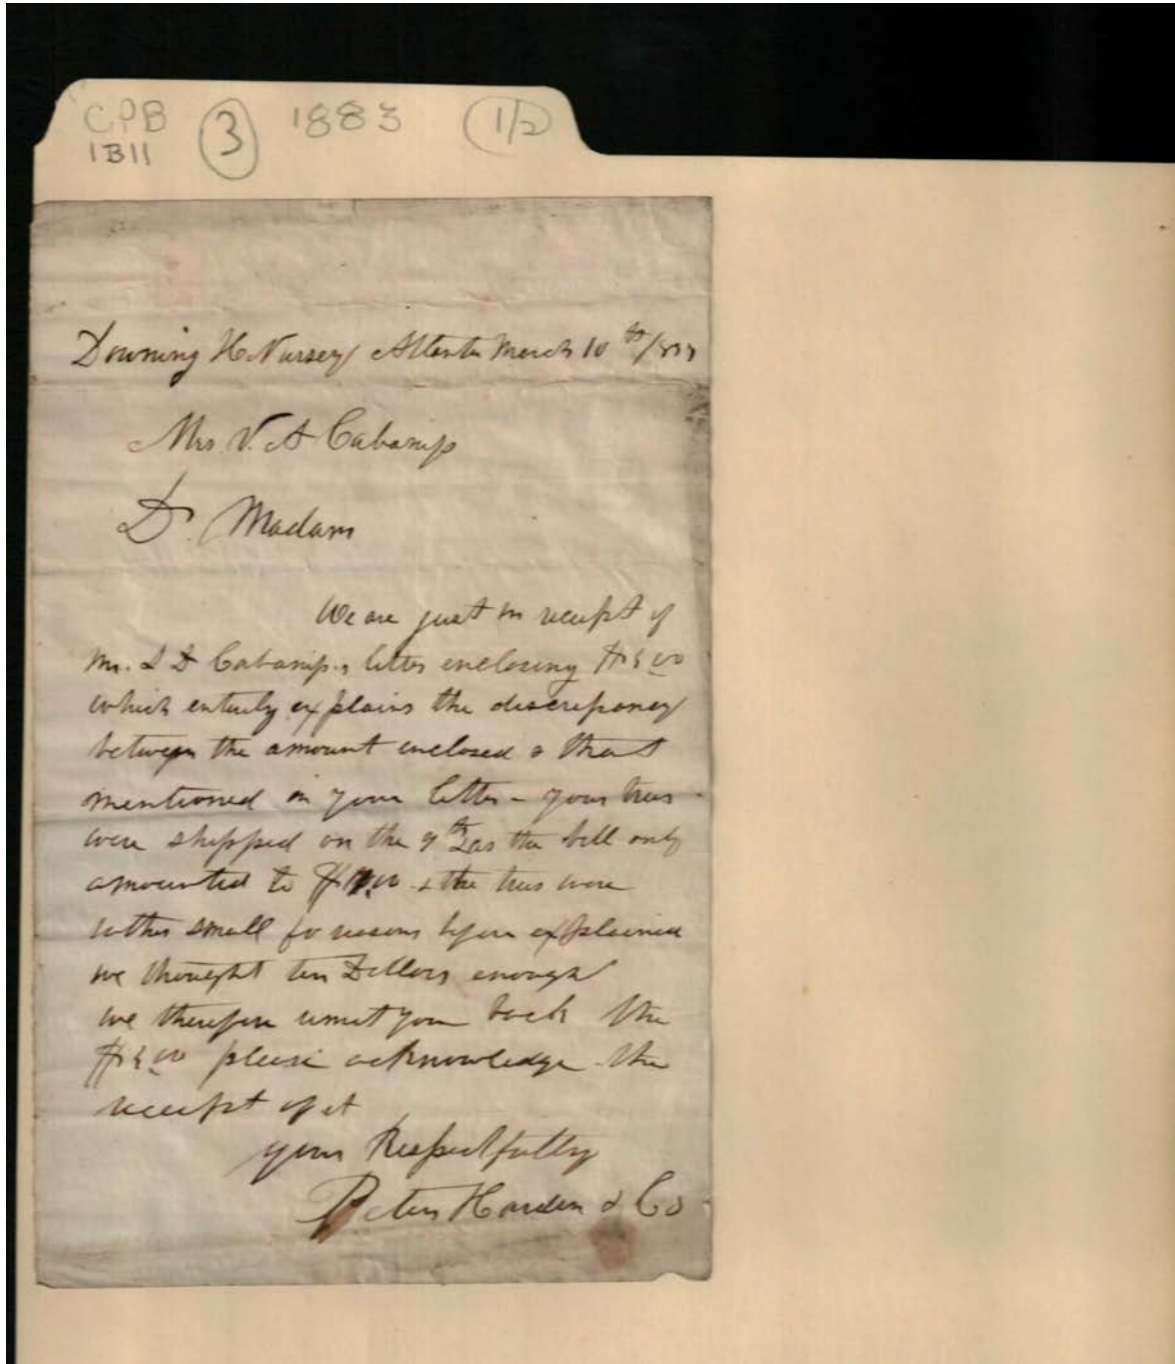 CPB
1B11
3
1883
1/2
Downing H Nursery Atlanta March 10th
Mrs V. A Cabaniss
Dr. Madam
We are just in receipt of
Mr. Cabaniss, letter enclosing
which entirely explains the discrepancy
between the amount enclosed & that
mentioned in your letter - your trees
were shipped on the 9th as the bill only
amounted to & the trees were
rather small for reasons before explained
we thought ten Dollars enough
we therefore remit you back the
please acknowledge the
receipt of it
your Respectfully
Peters Harden & Co